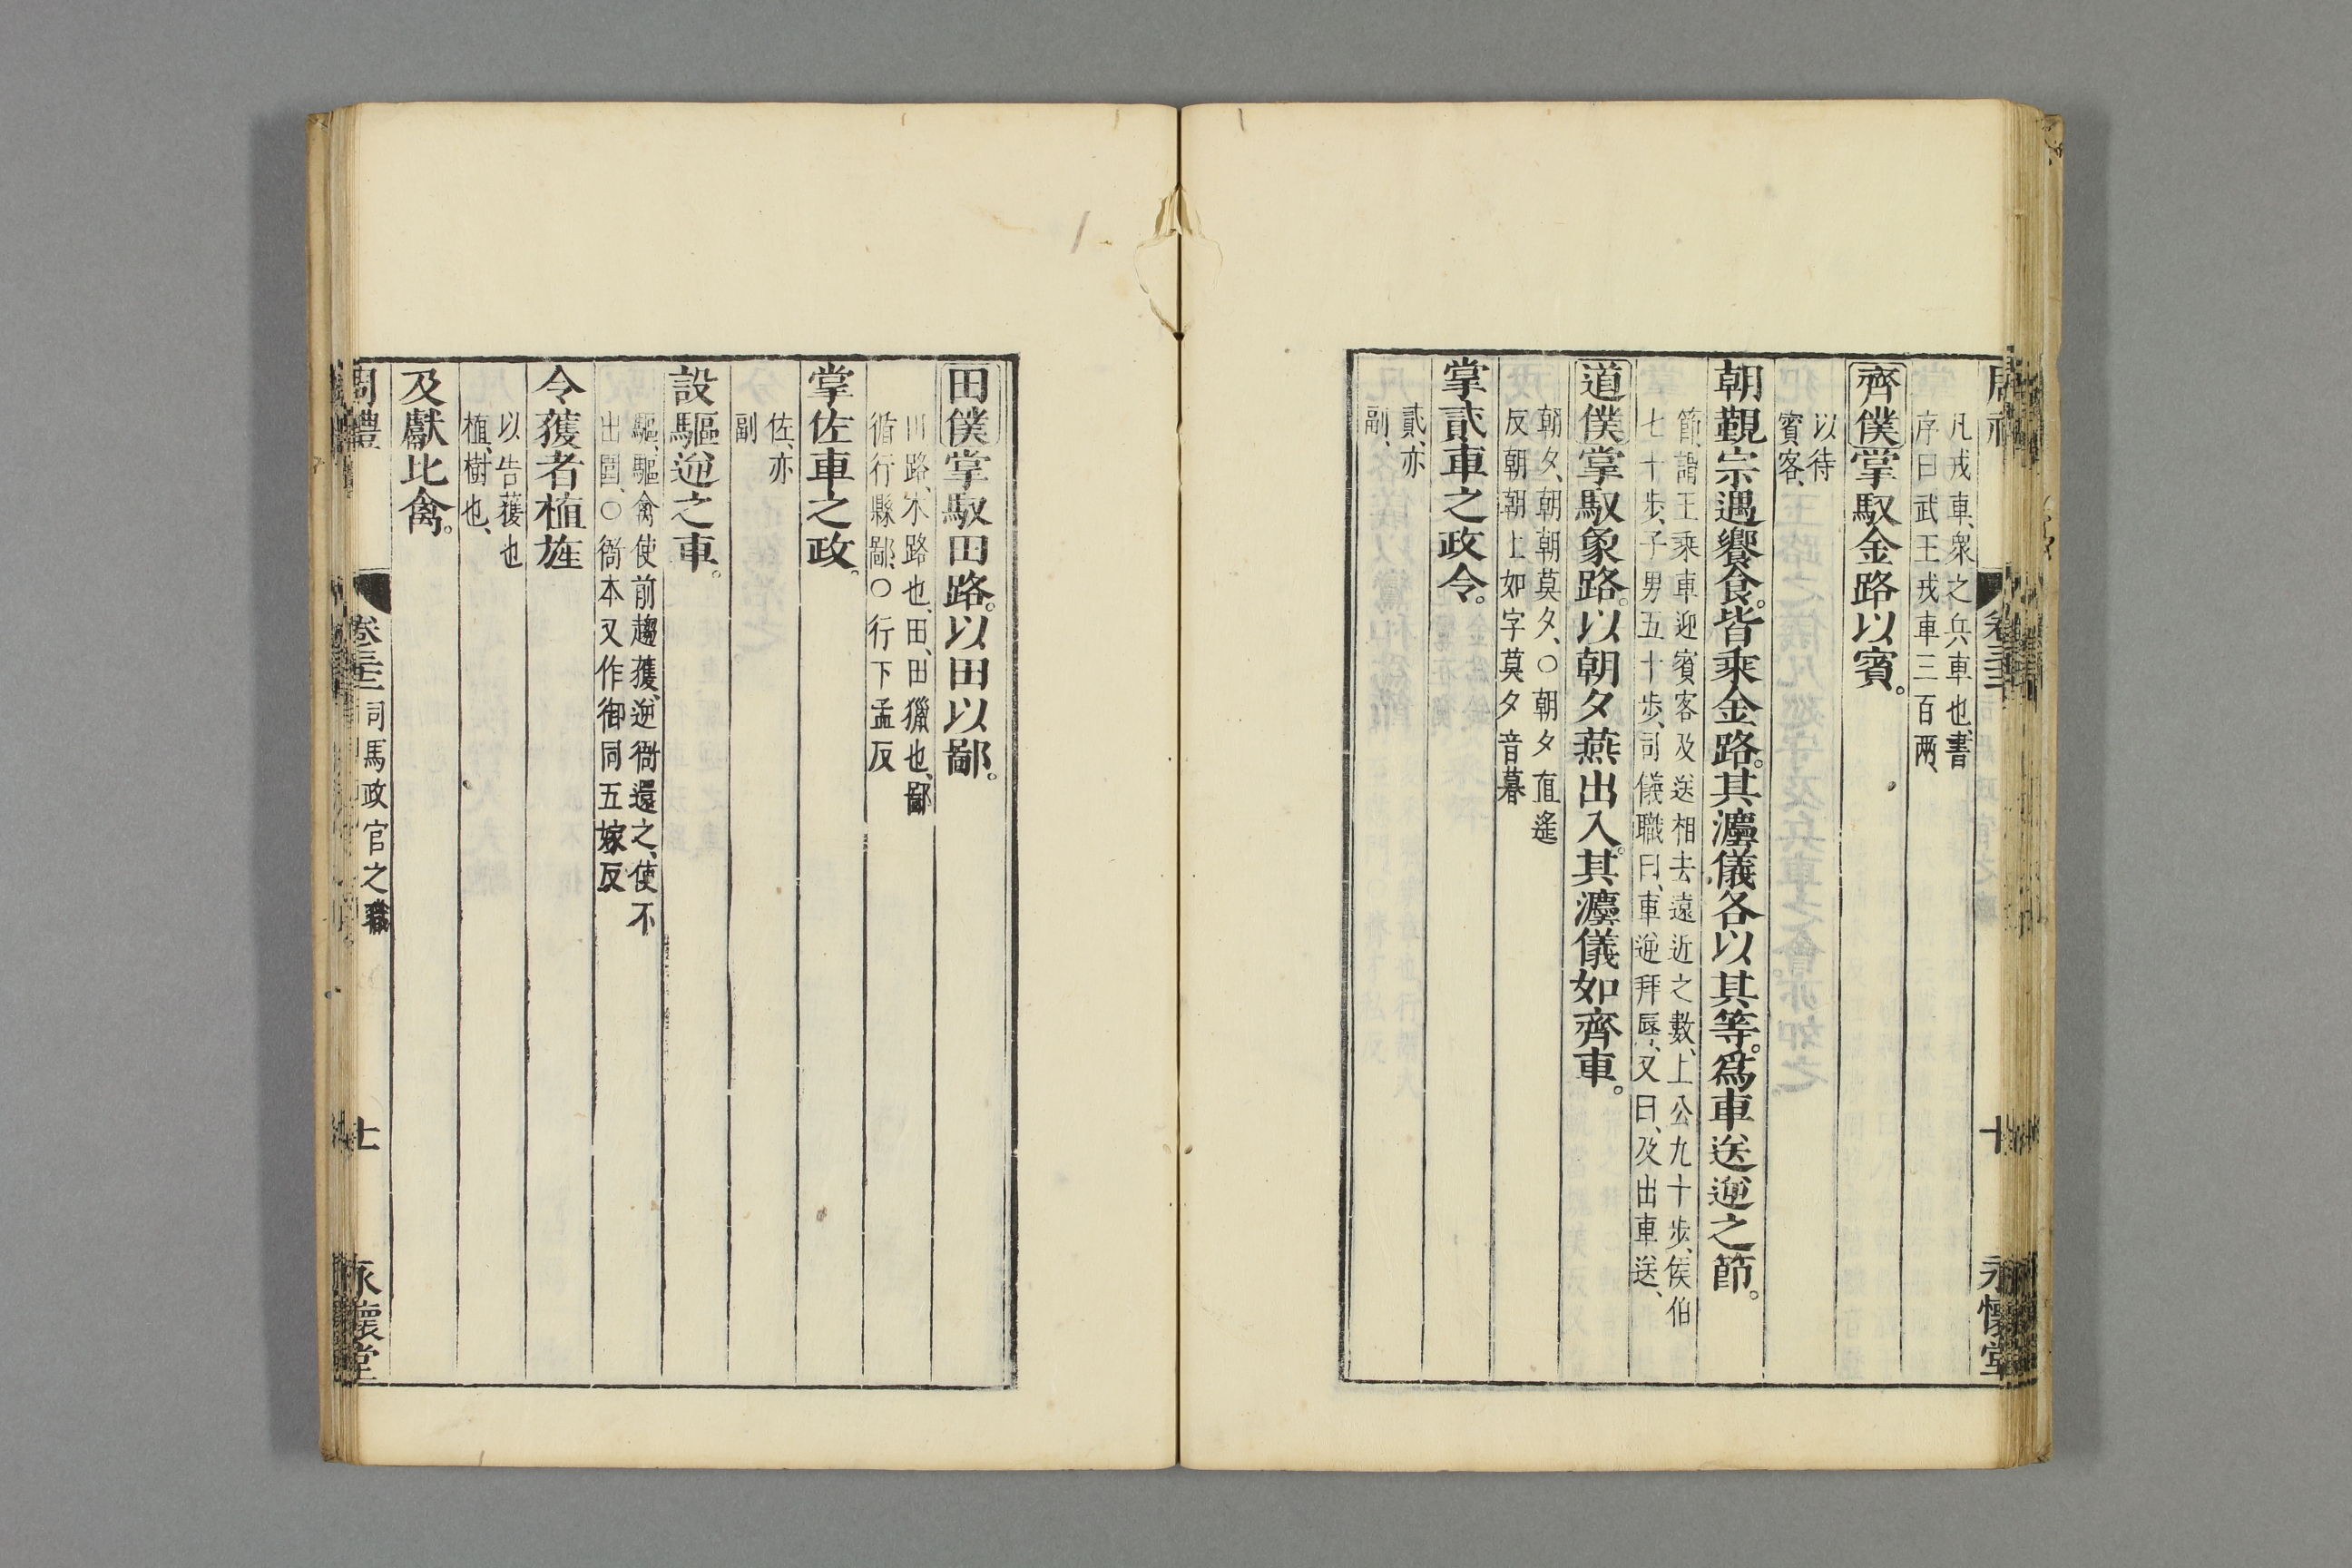 凡戎車、衆之兵車也、書
序曰武王戎車三百兩、
齊僕掌馭金路以賓。
以待
賓客、
朝覲宗遇饗食。皆乘金路。其灋儀各以其等。爲車送逆之節。
節、謂王乘車迎賓客及送相去遠近之數、上公九十步、侯伯
七十步、子男五十步、司儀職曰、車逆拜辱、又曰、及出車送、
道僕掌馭象路。以朝夕燕出入。其灋儀如齊車。
朝夕、朝朝莫夕、○朝夕直遙
反朝朝上如字莫夕音暮
掌貳車之政令。
貳、亦
副、
田僕掌馭田路。以田以鄙。
田路、木路也、田、田獵也、鄙
循行縣鄙、○行下孟反
掌佐車之政。
佐、亦
副
設驅逆之車。
驅、驅禽使前趨獲、逆衙還之、使不
出圍、○衙本又作御同五嫁反
令獲者植旌
以告獲也
植、樹也、
及獻比禽。
周禮 卷三十二 司馬政官之職 十一 永懷堂